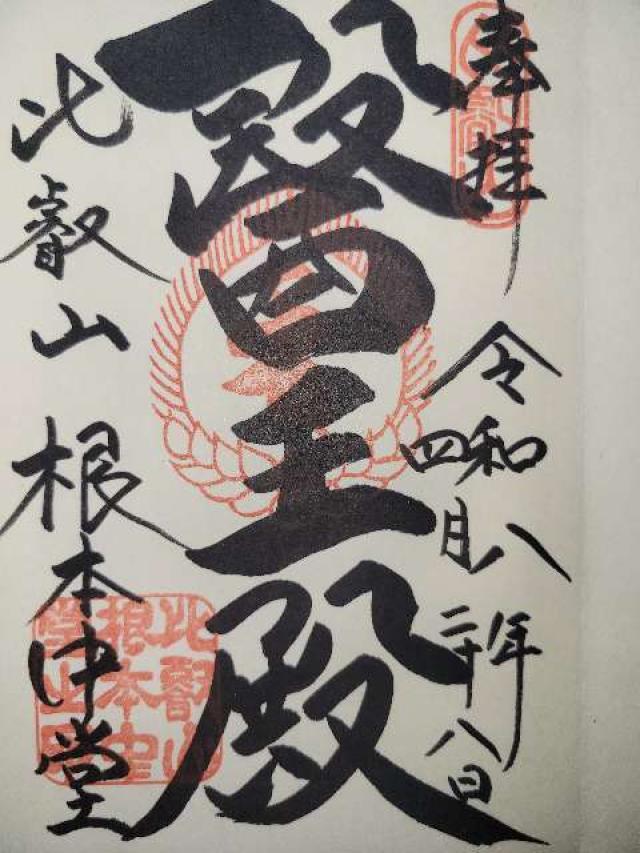 奉拝
令和八年
四月二十八日
醫王殿
比叡山 根本中堂
比叡山
根本中
堂之印